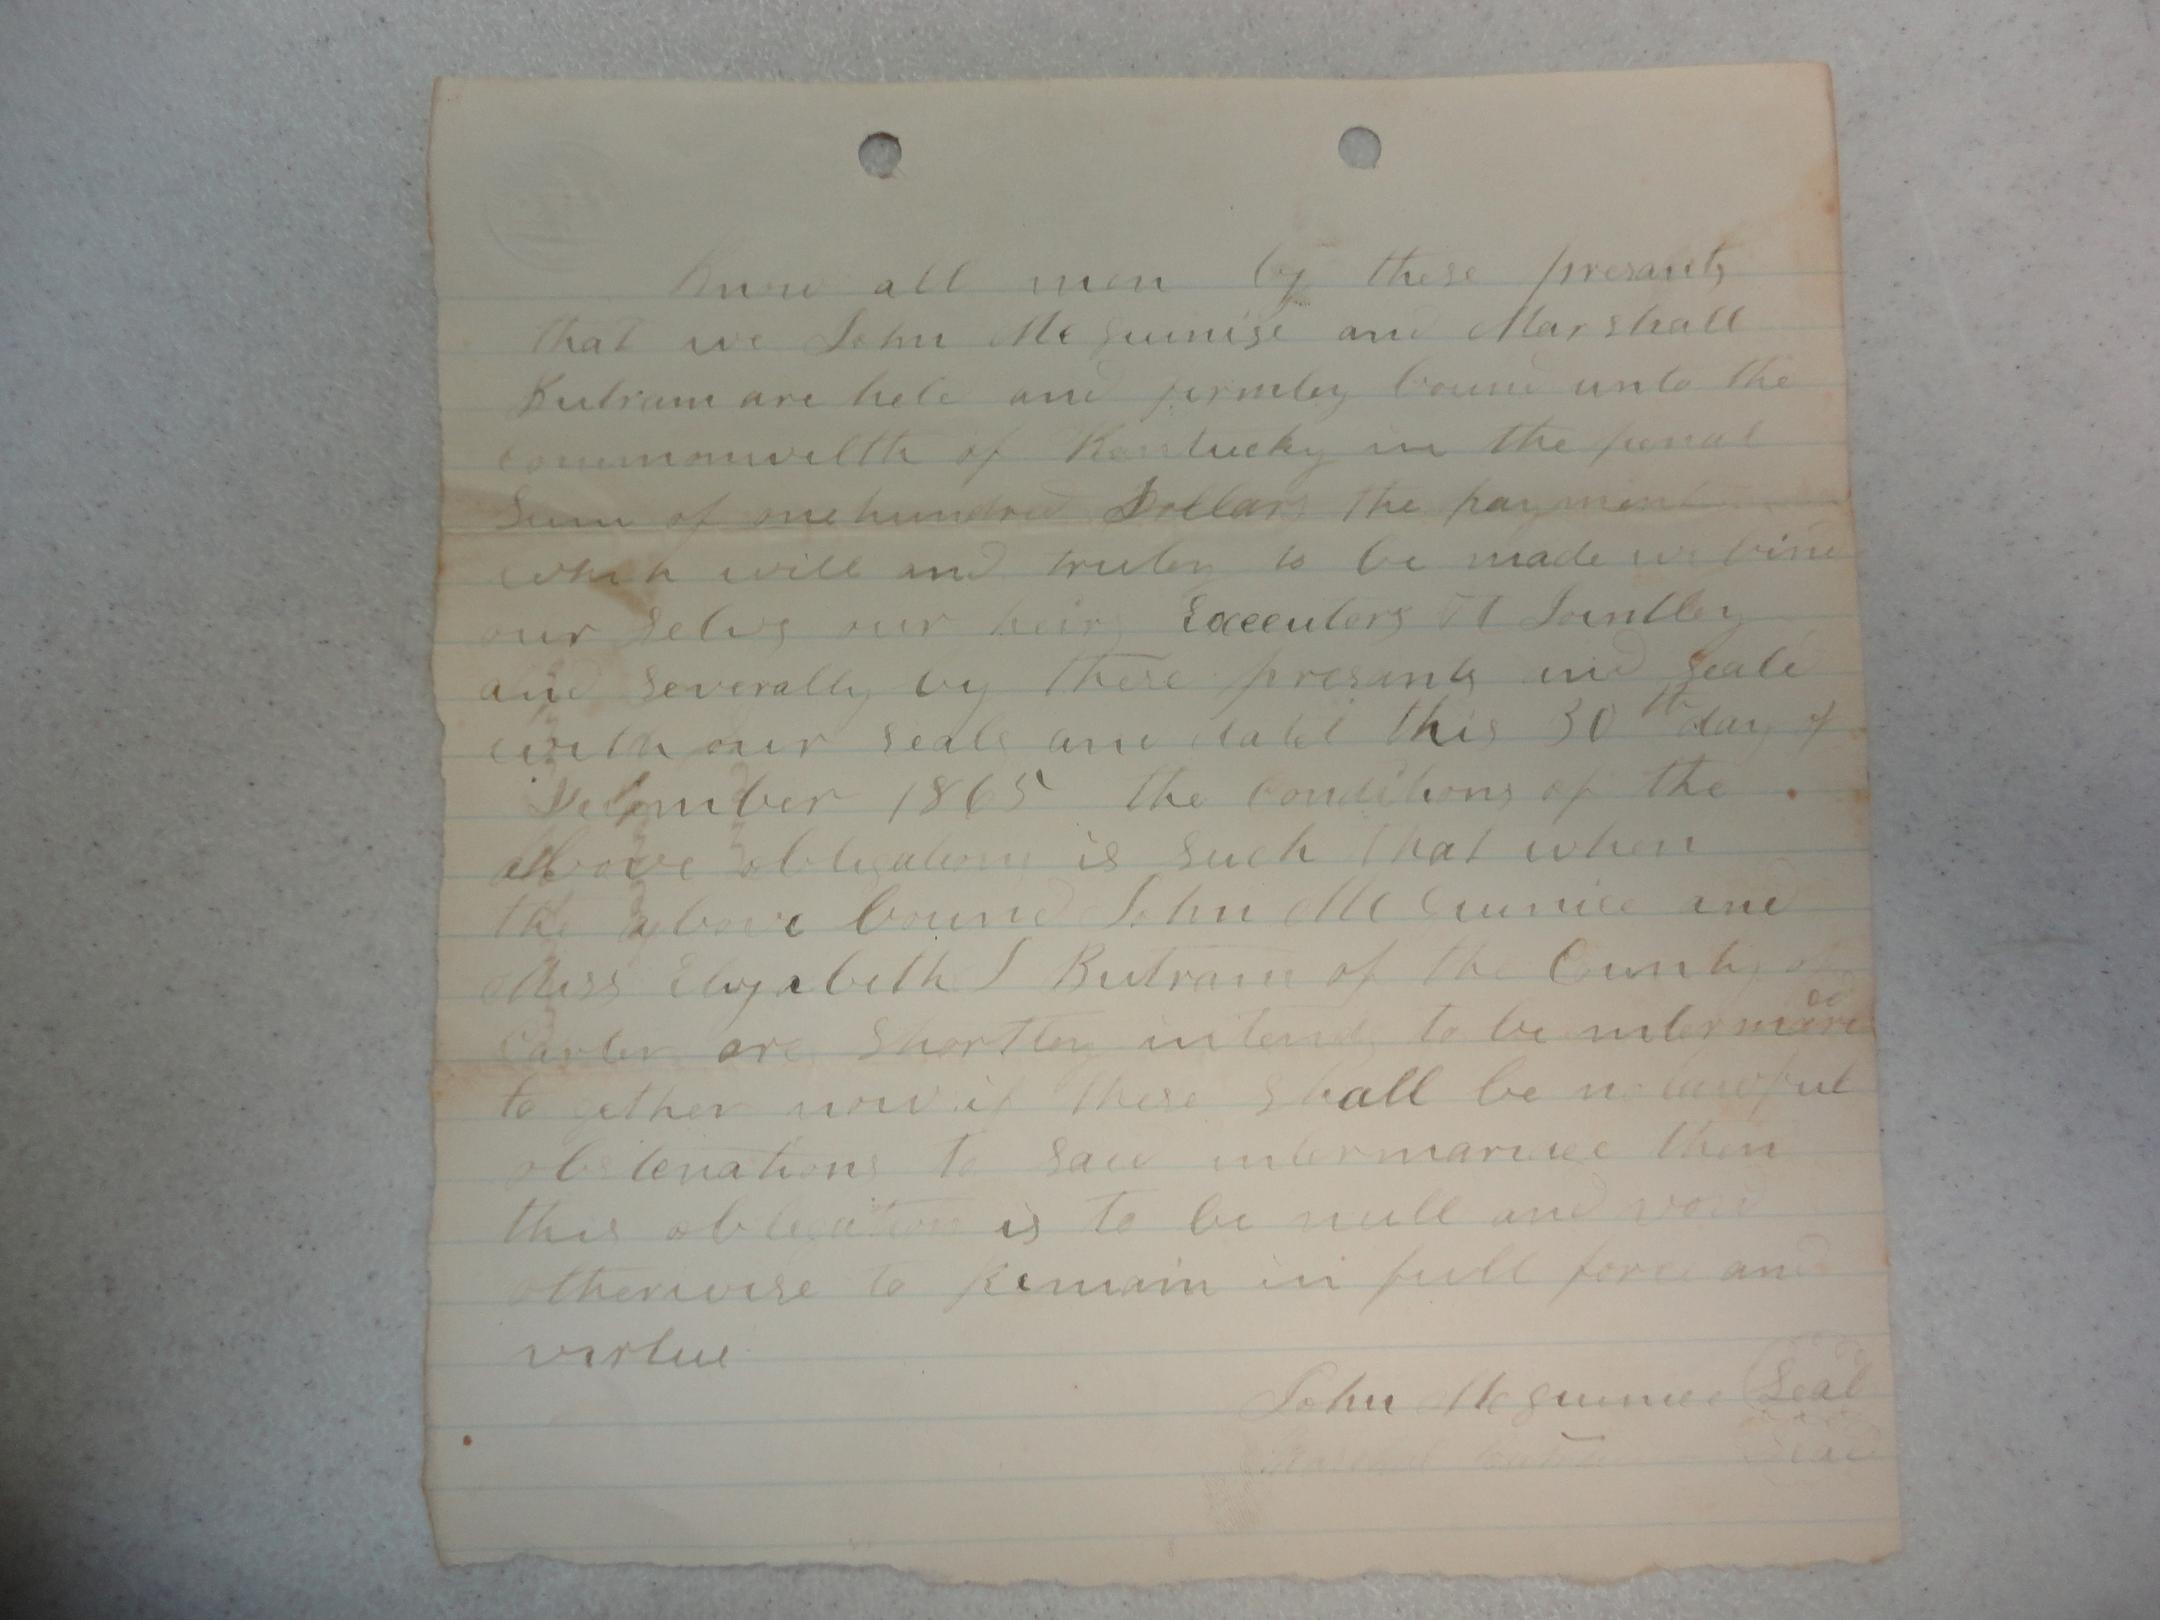 Know all men by these presants
that we John McGuinise and Marshall
Butram are held and firmley bound unto the
commonwelth of Kentucky in the penal
Sum of one hundred Dollars the payment
which will and truley to be made we bind
our Selvs our heirs Executers Jointley
and Severally by these presants and Seald
with our Seals and dated this 30th day of
December 1865 the conditions of the
above obligations is Such that when
the above bound John McGuinice and
Miss Elizabeth J Butram of the County of
Carter are Shortley intends to be intermared
to gether now if there Shall be no lawful
to Said intermariage then
this obligation is to be null and void
otherwise to Remain in full force and
virtue
John McGuinice Seal
Marshal Butram Seal